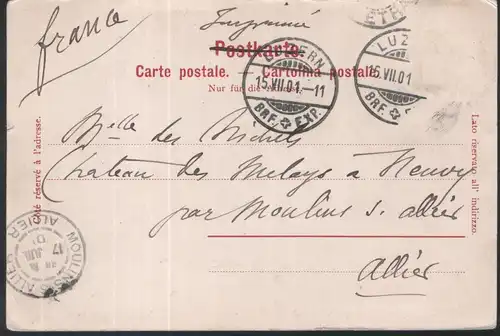 france
Imprimé
Postkarte.
Carte postale. — Cartolina postale.
Nur für die Adresse.
LUZERN
15.VII.01.-11
BRF. EXP.
LUZ
15.VII.01
BRF.
Côté réservé à l'adresse.
Lato riservato all' indirizzo.
Mlle des
Chateau des Melays à Neuvy
par Moulins s. allier
Allier
MOULINS ALLIER
17 JUIL
01